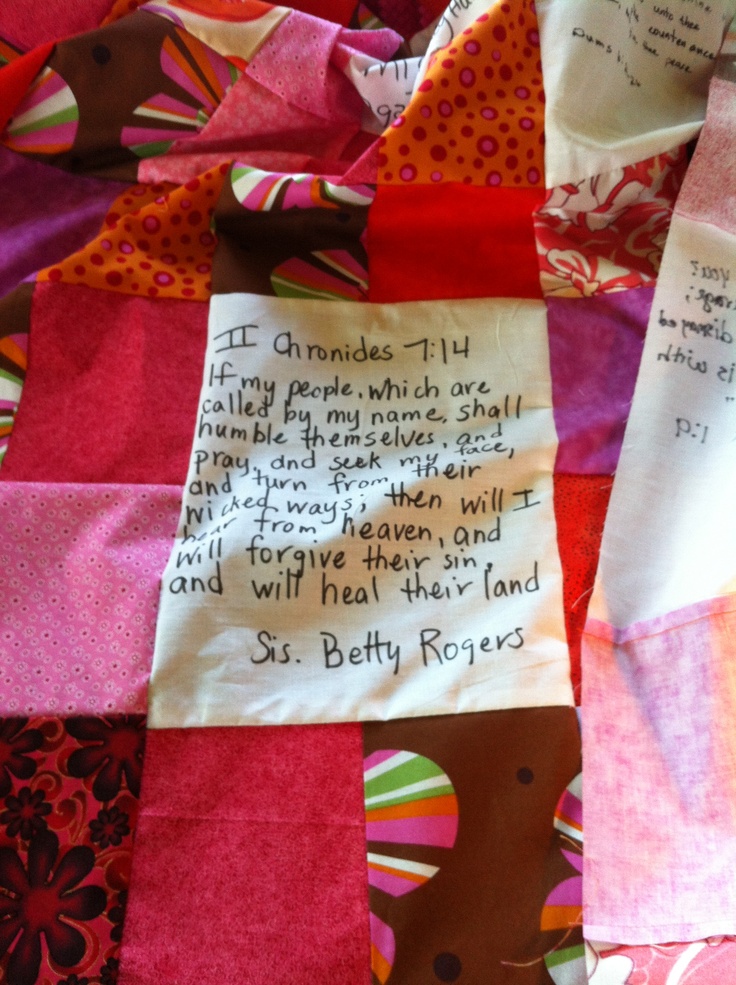 unto thee
countenance
the peace
II Chronicles 7:14
If my people, which are
called by my name, shall
humble themselves, and
pray, and seek my face,
and turn from their
wicked ways; then will I
hear from heaven, and
will forgive their sin,
and will heal their land
Sis. Betty Rogers
you?
dismayed
is with
1:9